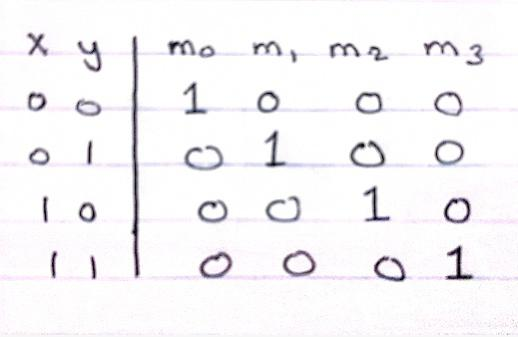 x y | m₀ m₁ m₂ m₃
0 0 | 1 0 0 0
0 1 | 0 1 0 0
1 0 | 0 0 1 0
1 1 | 0 0 0 1